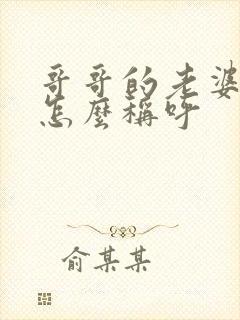 哥哥的老婆
怎麼稱呼
俞某某